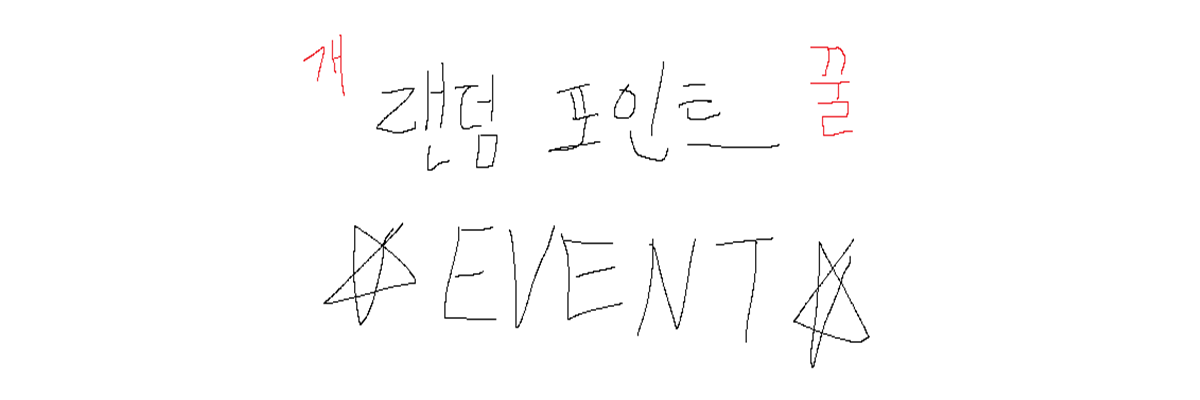 개 랜덤 포인트 꿀
☆EVENT☆